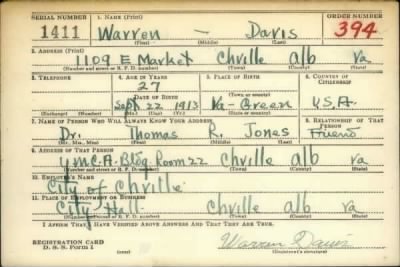 SERIAL NUMBER 1. NAME (Print) ORDER NUMBER
1411 Warren — Davis 394
(First) (Middle) (Last)
2. ADDRESS (Print)
1109 E Market Chville Alb Va
(Number and street or R. F. D. number) (Town) (County) (State)
3. TELEPHONE 4. AGE IN YEARS 5. PLACE OF BIRTH 6. COUNTRY OF CITIZENSHIP
27
DATE OF BIRTH (Town or county)
Sept 22 1913 Va - Green U.S.A.
(Exchange) (Number) (Mo.) (Day) (Yr.) (State or country)
7. NAME OF PERSON WHO WILL ALWAYS KNOW YOUR ADDRESS 8. RELATIONSHIP OF THAT PERSON
Dr. Thomas R. Jones Friend
(Mr., Mrs., Miss) (First) (Middle) (Last)
9. ADDRESS OF THAT PERSON
Y.M.C.A. Bldg Room 22 Chville Alb Va
(Number and street or R. F. D. number) (Town) (County) (State)
10. EMPLOYER'S NAME
City of Chville
11. PLACE OF EMPLOYMENT OR BUSINESS
City Hall Chville alb Va
(Number and street or R. F. D. number) (Town) (County) (State)
I AFFIRM THAT I HAVE VERIFIED ABOVE ANSWERS AND THAT THEY ARE TRUE.
REGISTRATION CARD
D. S. S. Form 1
Warren Davis
(Registrant's signature)